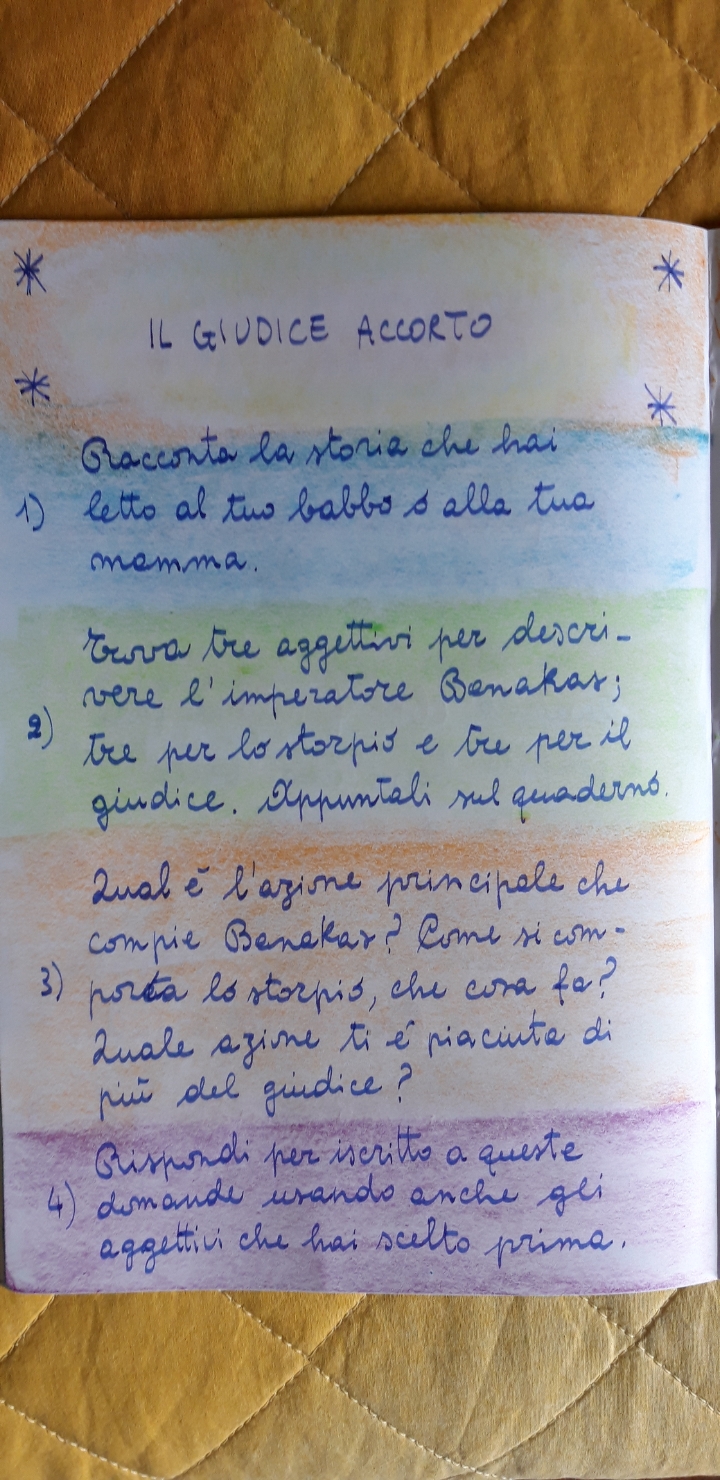 IL GIUDICE ACCORTO
Racconta la storia che hai
1) letto al tuo babbo o alla tua
mamma.
Trova tre aggettivi per descri-
vere l'imperatore Benakas;
2) tre per lo storpio e tre per il
giudice. Appuntali sul quaderno.
Qual è l'azione principale che
compie Benakas? Come si com-
3) porta lo storpio, che cosa fa?
Quale azione ti è piaciuta di
più del giudice?
Rispondi per iscritto a queste
4) domande usando anche gli
aggettivi che hai scelto prima.